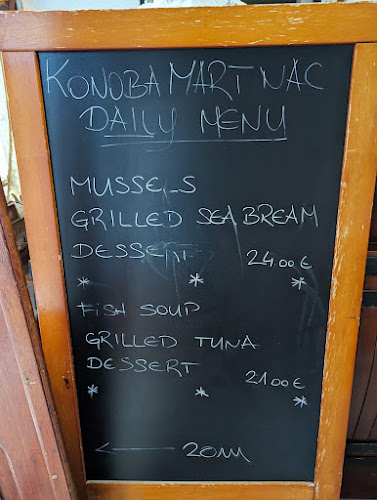 KONOBA MARTINAC
DAILY MENU
MUSSELS
GRILLED SEA BREAM
DESSERT 24.00 €
* * *
FISH SOUP
GRILLED TUNA
DESSERT 21.00 €
* * *
← 20m